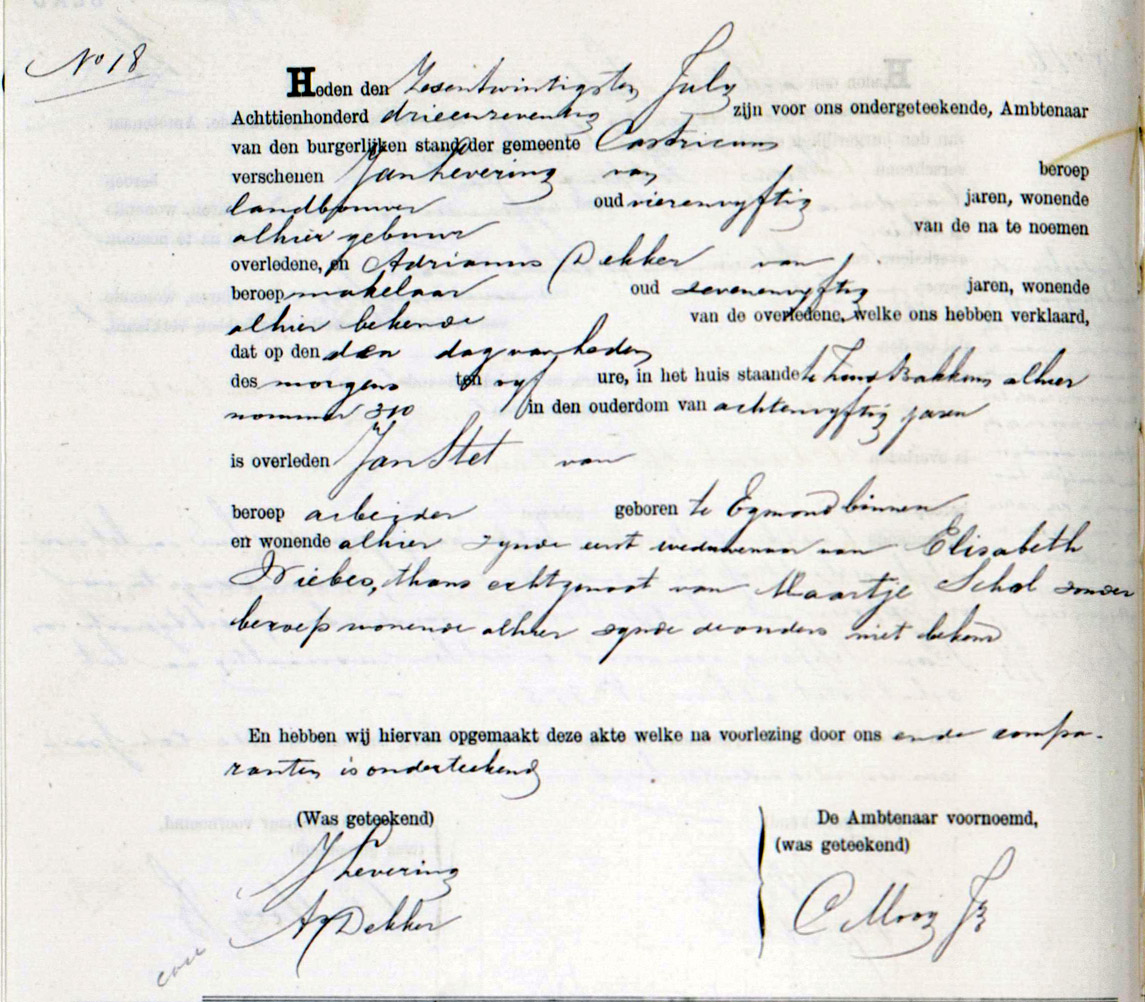 No 18
Heden den Zesentwintigsten July
Achttienhonderd drieenzeventig zijn voor ons ondergeteekende, Ambtenaar
van den burgerlijken stand der gemeente Castricum
verschenen Jan Levering van beroep
landbouwer oud vierenvyftig jaren, wonende
alhier gebuur van de na te noemen
overledene, en Adrianus Dekker van
beroep makelaar oud zevenenvyftig jaren, wonende
alhier bekende van de overledene, welke ons hebben verklaard,
dat op den den dag van heden
des morgens ten vyf ure, in het huis staande te Bakkum alhier
nommer 310 in den ouderdom van achtenvyftig jaren
is overleden Jan Stet van
beroep arbeider geboren te Egmond binnen
en wonende alhier zynde eerst weduwenaar van Elisabeth
Niebes, thans echtgenoot van Maartje Schol zonder
beroep wonende alhier zynde de ouders niet bekend
En hebben wij hiervan opgemaakt deze akte welke na voorlezing door ons en de compa-
ranten is onderteekend
(Was geteekend)
J Levering
A Dekker
De Ambtenaar voornoemd,
(was geteekend)
C Mooy Jz